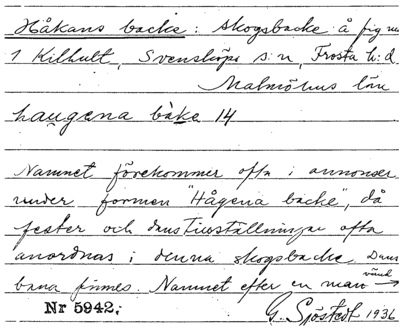 Håkans backe: skogsbacke å fig nr
1 Kilhult, Svensköps s:n, Frosta h:d
Malmöhus län
haugena bake 14
Namnet förekommer ofta i annonser
under formen "Hågena backe", då
fester och danstillställningar ofta
anordnas i denna skogsbacke. Dans
bana finnes. Namnet efter en man
vänd →
Nr 5942,
G. Sjöstedt 1936